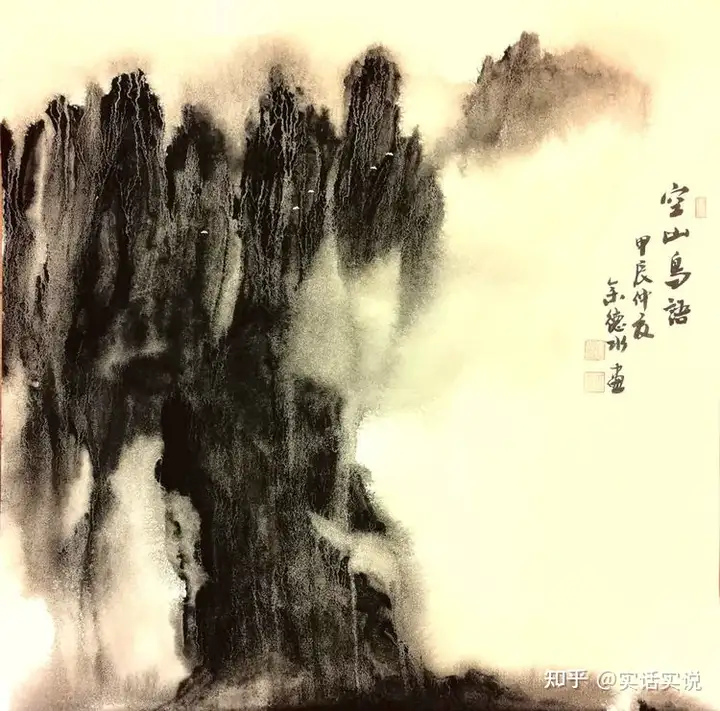 空山鸟語
甲辰仲夏
余德水畫
知乎 @实话实说